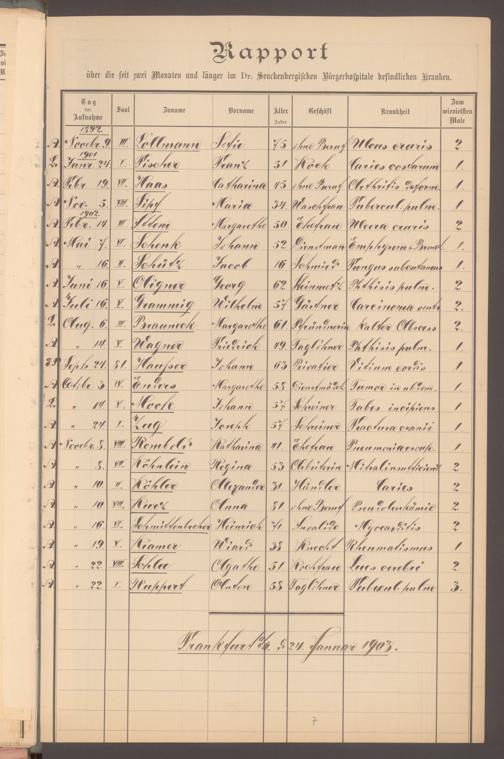 Rapport
über die seit zwei Monaten und länger im Dr. Senckenbergischen Bürgerhospitale befindlichen Kranken.
Tag der Aufnahme Saal Zuname Vorname Alter Jahre Geschäft Krankheit Zum wievielten Male
1892
A. Novbr. 9. III. Lollmann Sofie 75 ohne Beruf Ulcus cruris 2
1901
L. Janr. 24 I. Pischer Franz 51 Koch Caries costarum 1.
A. Febr. 19. VII. Haas Catharina 45 ohne Beruf 1.
A. Nov. 5. VIII. Maria 34 Waschfrau Tubercul. pulm. 1.
1902
A. Febr. 14. III. Margarethe 50 Ehefrau Ulcera cruris 2
A. Mai 7. VI. Schenk Johann 52 Dienstman Emphysem 1.
A. " 16 Schütz Jacob 16 Schmied Fungus 1.
A. Juni 16 V. Oligner Georg 62 Phthisis pulm. 2.
A. Juli 16 V. Grammig Wilhelm 57 Gärtner Carcinoma 2.
L. Aug. 6. III. Brauneck Margarethe 61 Pfründnerin Kalter Abscess 2.
A. " 14 V. Wagner Friedrich 49 Taglöhner Phthisis pulm. 1.
Septb. 24 51 Hauser Johann 63 Privatier Vitium cordis 1
A. Octbr. 3 IV. Enders Margarethe 58 Dienstmädch. Tumor in abdom. 1.
L. " 14 V. Mook Johann 57 Schreiner Tabes incipiens 1
A. " 24 I. Zug Joseph 57 Schreiner Fractura cranii 1
A. Novbr. 3. VIII. Katharina 41 Ehefrau Pneumonia 1
A. " 8. VII. Köhnlein Regina 53 Arbeiterin Mitralinsufficienz 2
A. " 10 II. Köhler Alexander 31 Händler Caries 2
A. " 10 VIII. Kurz Anna 51 ohne Beruf Pseudoleukämie 2
A. " 16 VI. Heinrich 71 Invalide Myocarditis 2
A. " 19 V. Kramer Wiard 38 Knecht Rheumatismus 1
A. " 22 VIII. Agathe 51 Kochfrau Lues cerebri 2
A. " 22 I. Ruppert Anton 58 Taglöhner Tubercul. pulm. 3.
Frankfurt a/M. d. 24. Januar 1903.
7